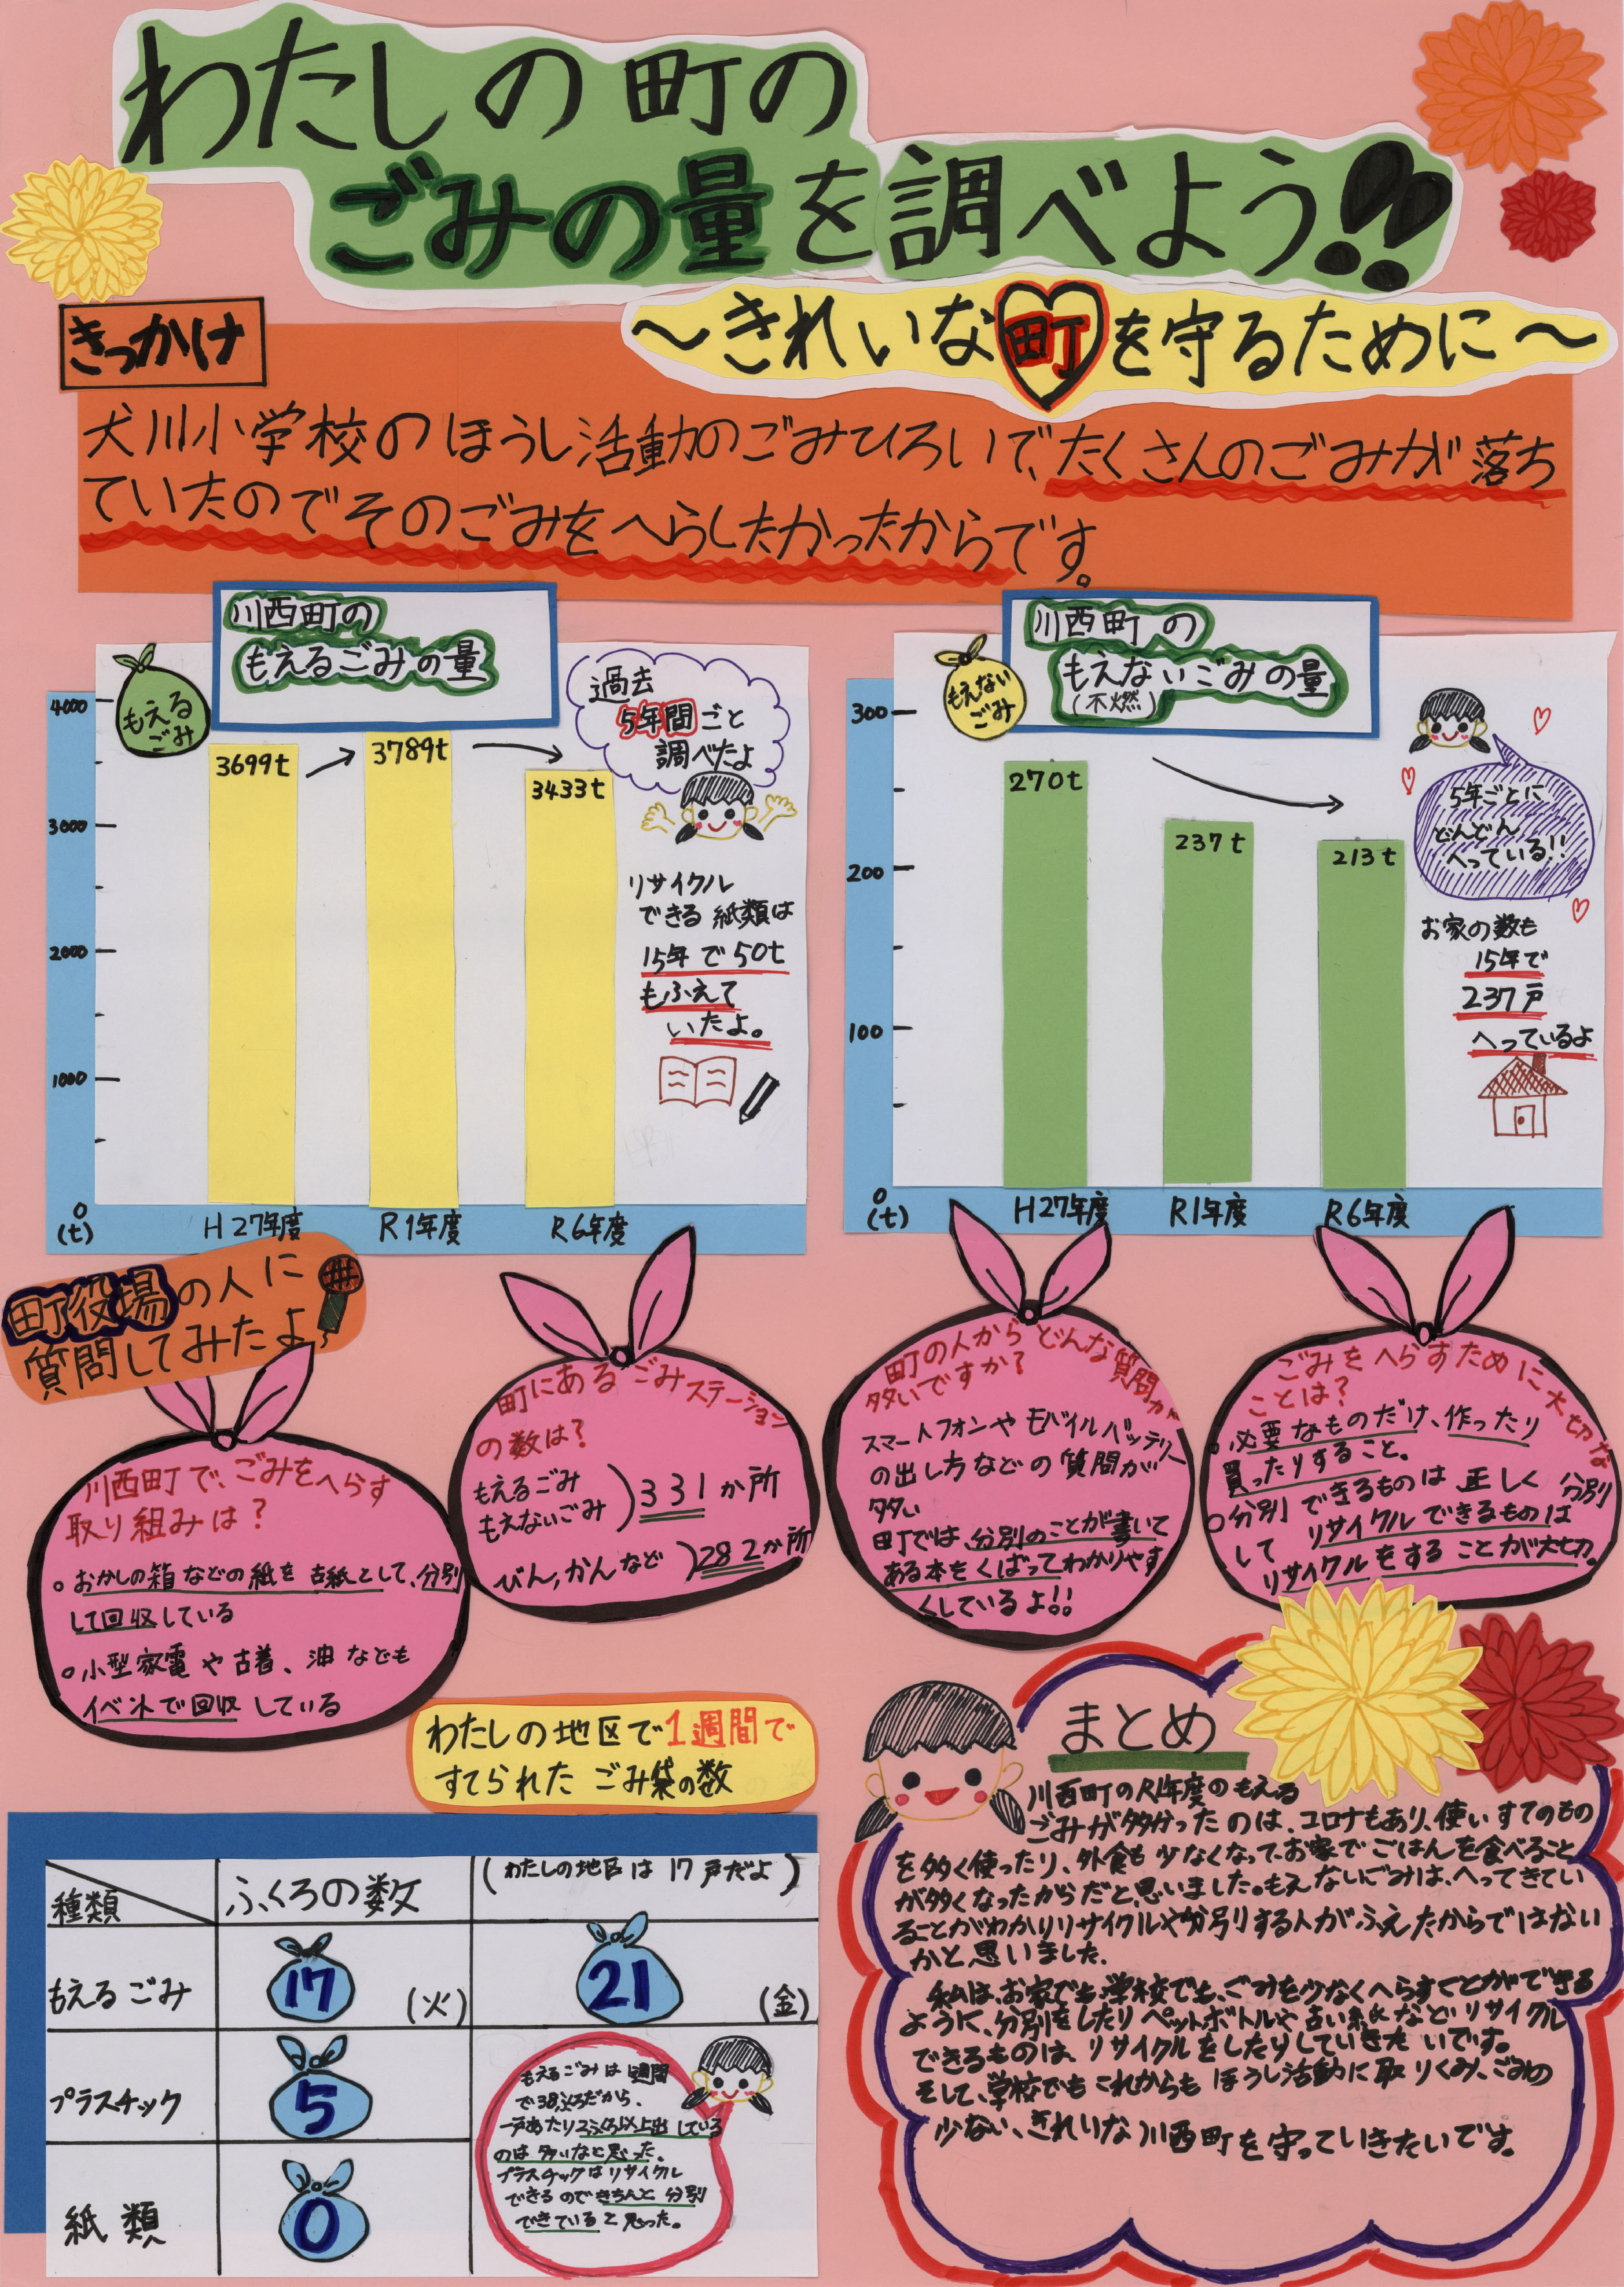 わたしの町の
ごみの量を調べよう!!
～きれいな町を守るために～
きっかけ
犬川小学校のほうし活動のごみひろいで、たくさんのごみが落ち
ていたのでそのごみをへらしたかったからです。
川西町の
もえるごみの量
もえる
ごみ
過去
5年間ごと
調べたよ
4000
3000
2000
1000
0
(t)
3699t
3789t
3433t
H27年度
R1年度
R6年度
リサイクル
できる紙類は
15年で50t
もふえて
いたよ。
川西町の
もえないごみの量
(不燃)
もえない
ごみ
300
200
100
0
(t)
270t
237t
213t
H27年度
R1年度
R6年度
5年ごとに
どんどん
へっている!!
お家の数も
15年で
237戸
へっているよ
町役場の人に
質問してみたよ
川西町で、ごみをへらす
取り組みは?
○おかしの箱などの紙を古紙として、分別
して回収している
○小型家電や古着、油なども
イベントで回収している
町にあるごみステーション
の数は?
もえるごみ
もえないごみ
)331か所
びん,かんなど)282か所
町の人からどんな質問が
多いですか?
スマートフォンやモバイルバッテリー
の出し方などの質問が
多い
町では、分別のことが書いて
ある本をくばってわかりやす
くしているよ!!
ごみをへらすために大切な
ことは?
○必要なものだけ、作ったり
買ったりすること。
○分別できるものは正しく分別
してリサイクルできるものは
リサイクルをすることが大切。
わたしの地区で1週間で
すてられたごみ袋の数
種類
ふくろの数
(わたしの地区は17戸だよ)
もえるごみ
17
(火)
21
(金)
プラスチック
5
紙類
0
もえるごみは1週間
で38ふくろだから、
一戸あたり2ふくろ以上出している
のは多いなと思った。
プラスチックはリサイクル
できるのできちんと分別
できていると思った。
まとめ
川西町のR1年度のもえる
ごみが多かったのは、コロナもあり、使いすてのもの
を多く使ったり、外食も少なくなって、お家でごはんを食べること
が多くなったからだと思いました。もえないごみは、へってきてい
ることがわかりリサイクルや分別する人がふえたからではない
かと思いました。
私は、お家でも学校でも、ごみを少なくへらすことができる
ように、分別をしたりペットボトルや古い紙などリサイクル
できるものは、リサイクルをしたりしていきたいです。
そして、学校でもこれからもほうし活動に取りくみ、ごみの
少ない、きれいな川西町を守っていきたいです。